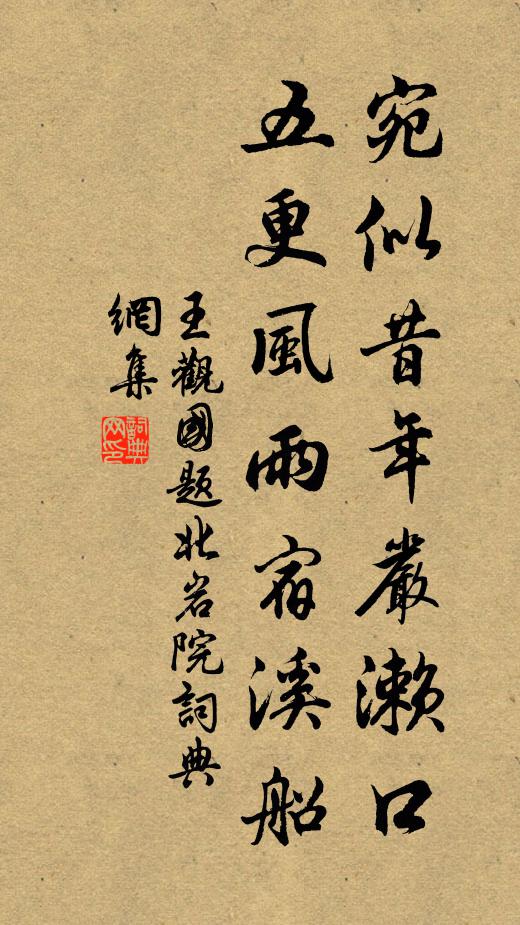 宛似昔年嚴瀨口
五更風雨宿溪船
王觀國題北岩院詞典
網集
詞典網印